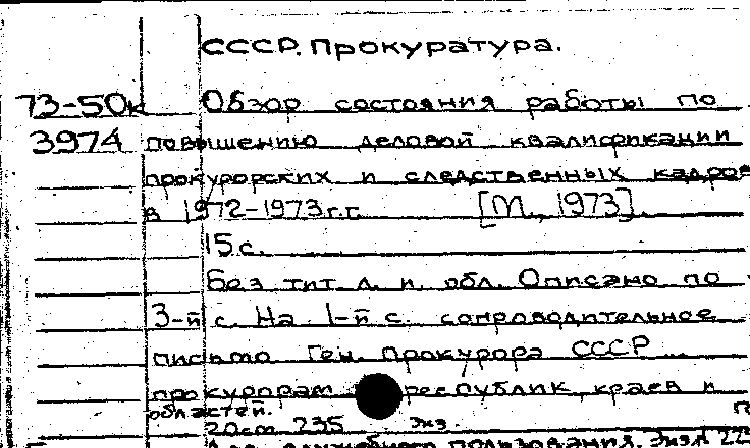 СССР. Прокуратура.
73-50к Обзор состояния работы по
3974 повышению деловой квалификации
прокурорских и следственных кадров
в 1972-1973 г.г. [М., 1973].
15 с.
Без тит. л. и обл. Описано по
3-й с. На 1-й с. сопроводительное
письмо Ген. Прокурора СССР
прокурорам республик, краев и
областей.
20 см. 235 экз.
Для служебного пользования. Экз.